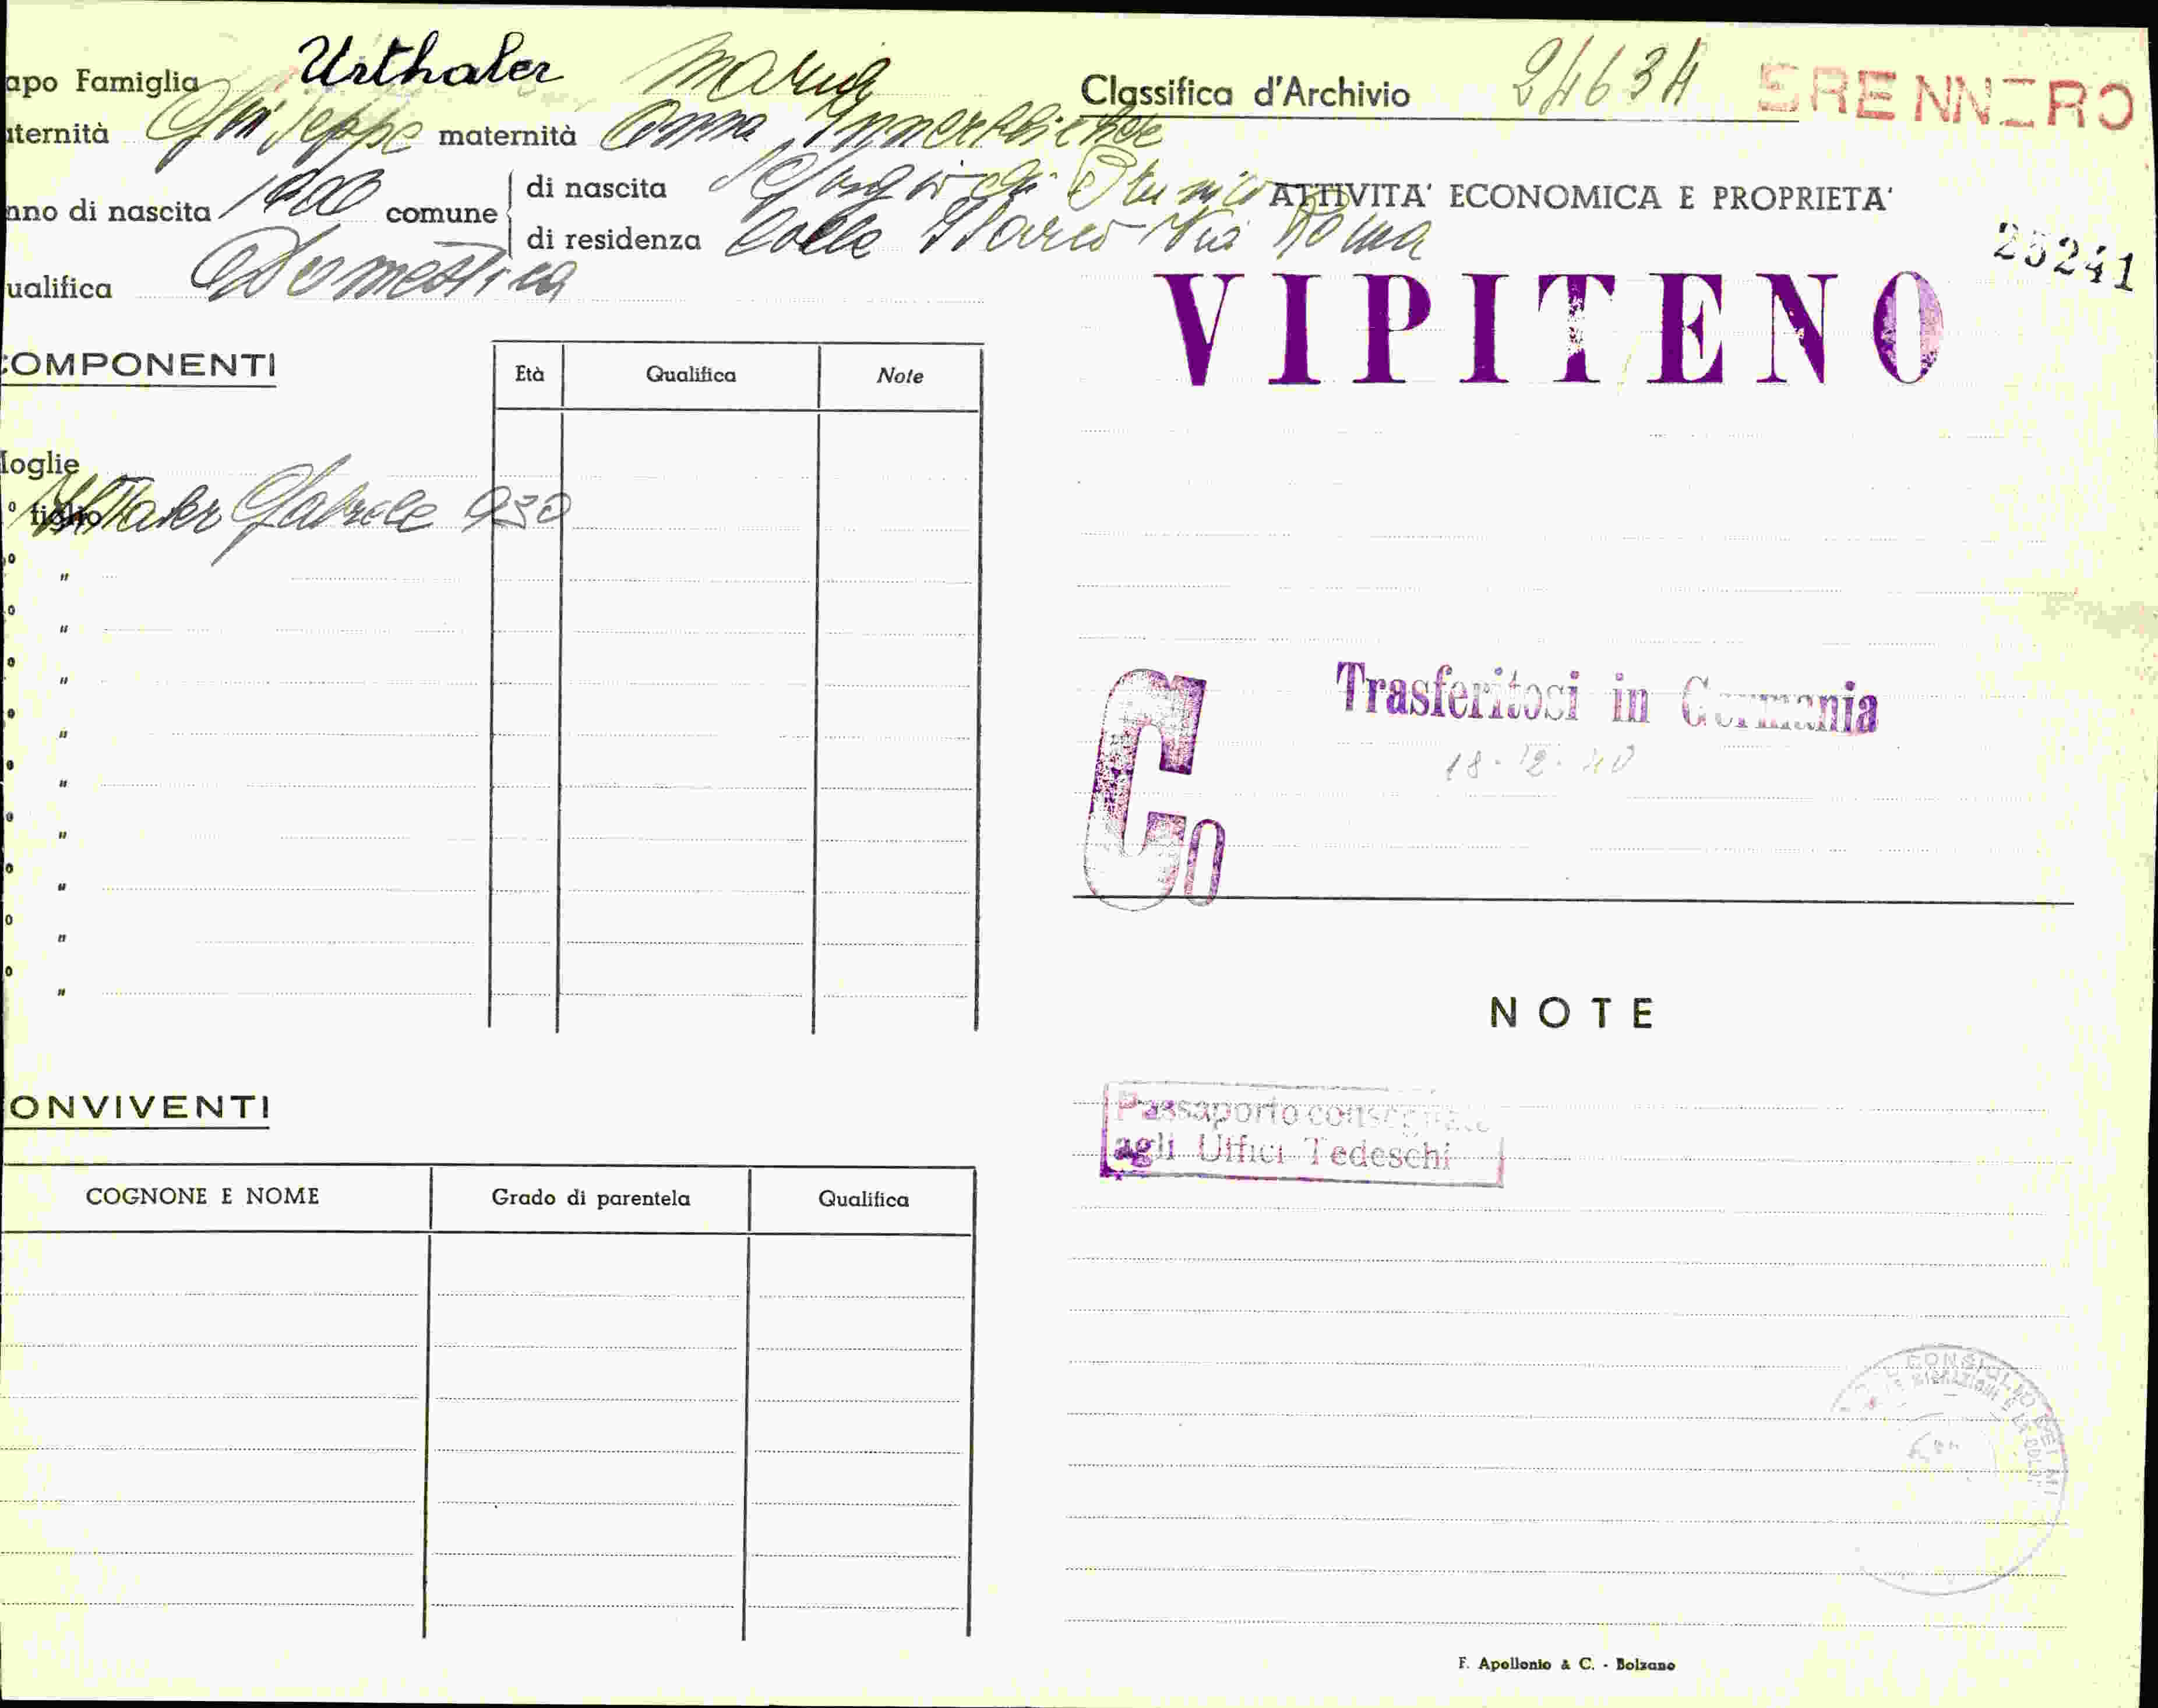 apo Famiglia Urthaler Maria
aternità Giuseppe maternità Anna Innerbichler
nno di nascita comune di nascita
di residenza Colle Isarco Via Roma
ualifica Domestica
COMPONENTI
Età Qualifica Note
Moglie
° figlio Gabriele 930
° "
° "
° "
° "
° "
° "
° "
° "
° "
ONVIVENTI
COGNONE E NOME Grado di parentela Qualifica
Classifica d'Archivio 24634 BRENNERO
ATTIVITA' ECONOMICA E PROPRIETA'
25241
VIPITENO
Trasferitosi in Germania
18-12-40
Co
NOTE
Passaporto consegnato
agli Uffici Tedeschi
F. Apollonio & C. - Bolzano